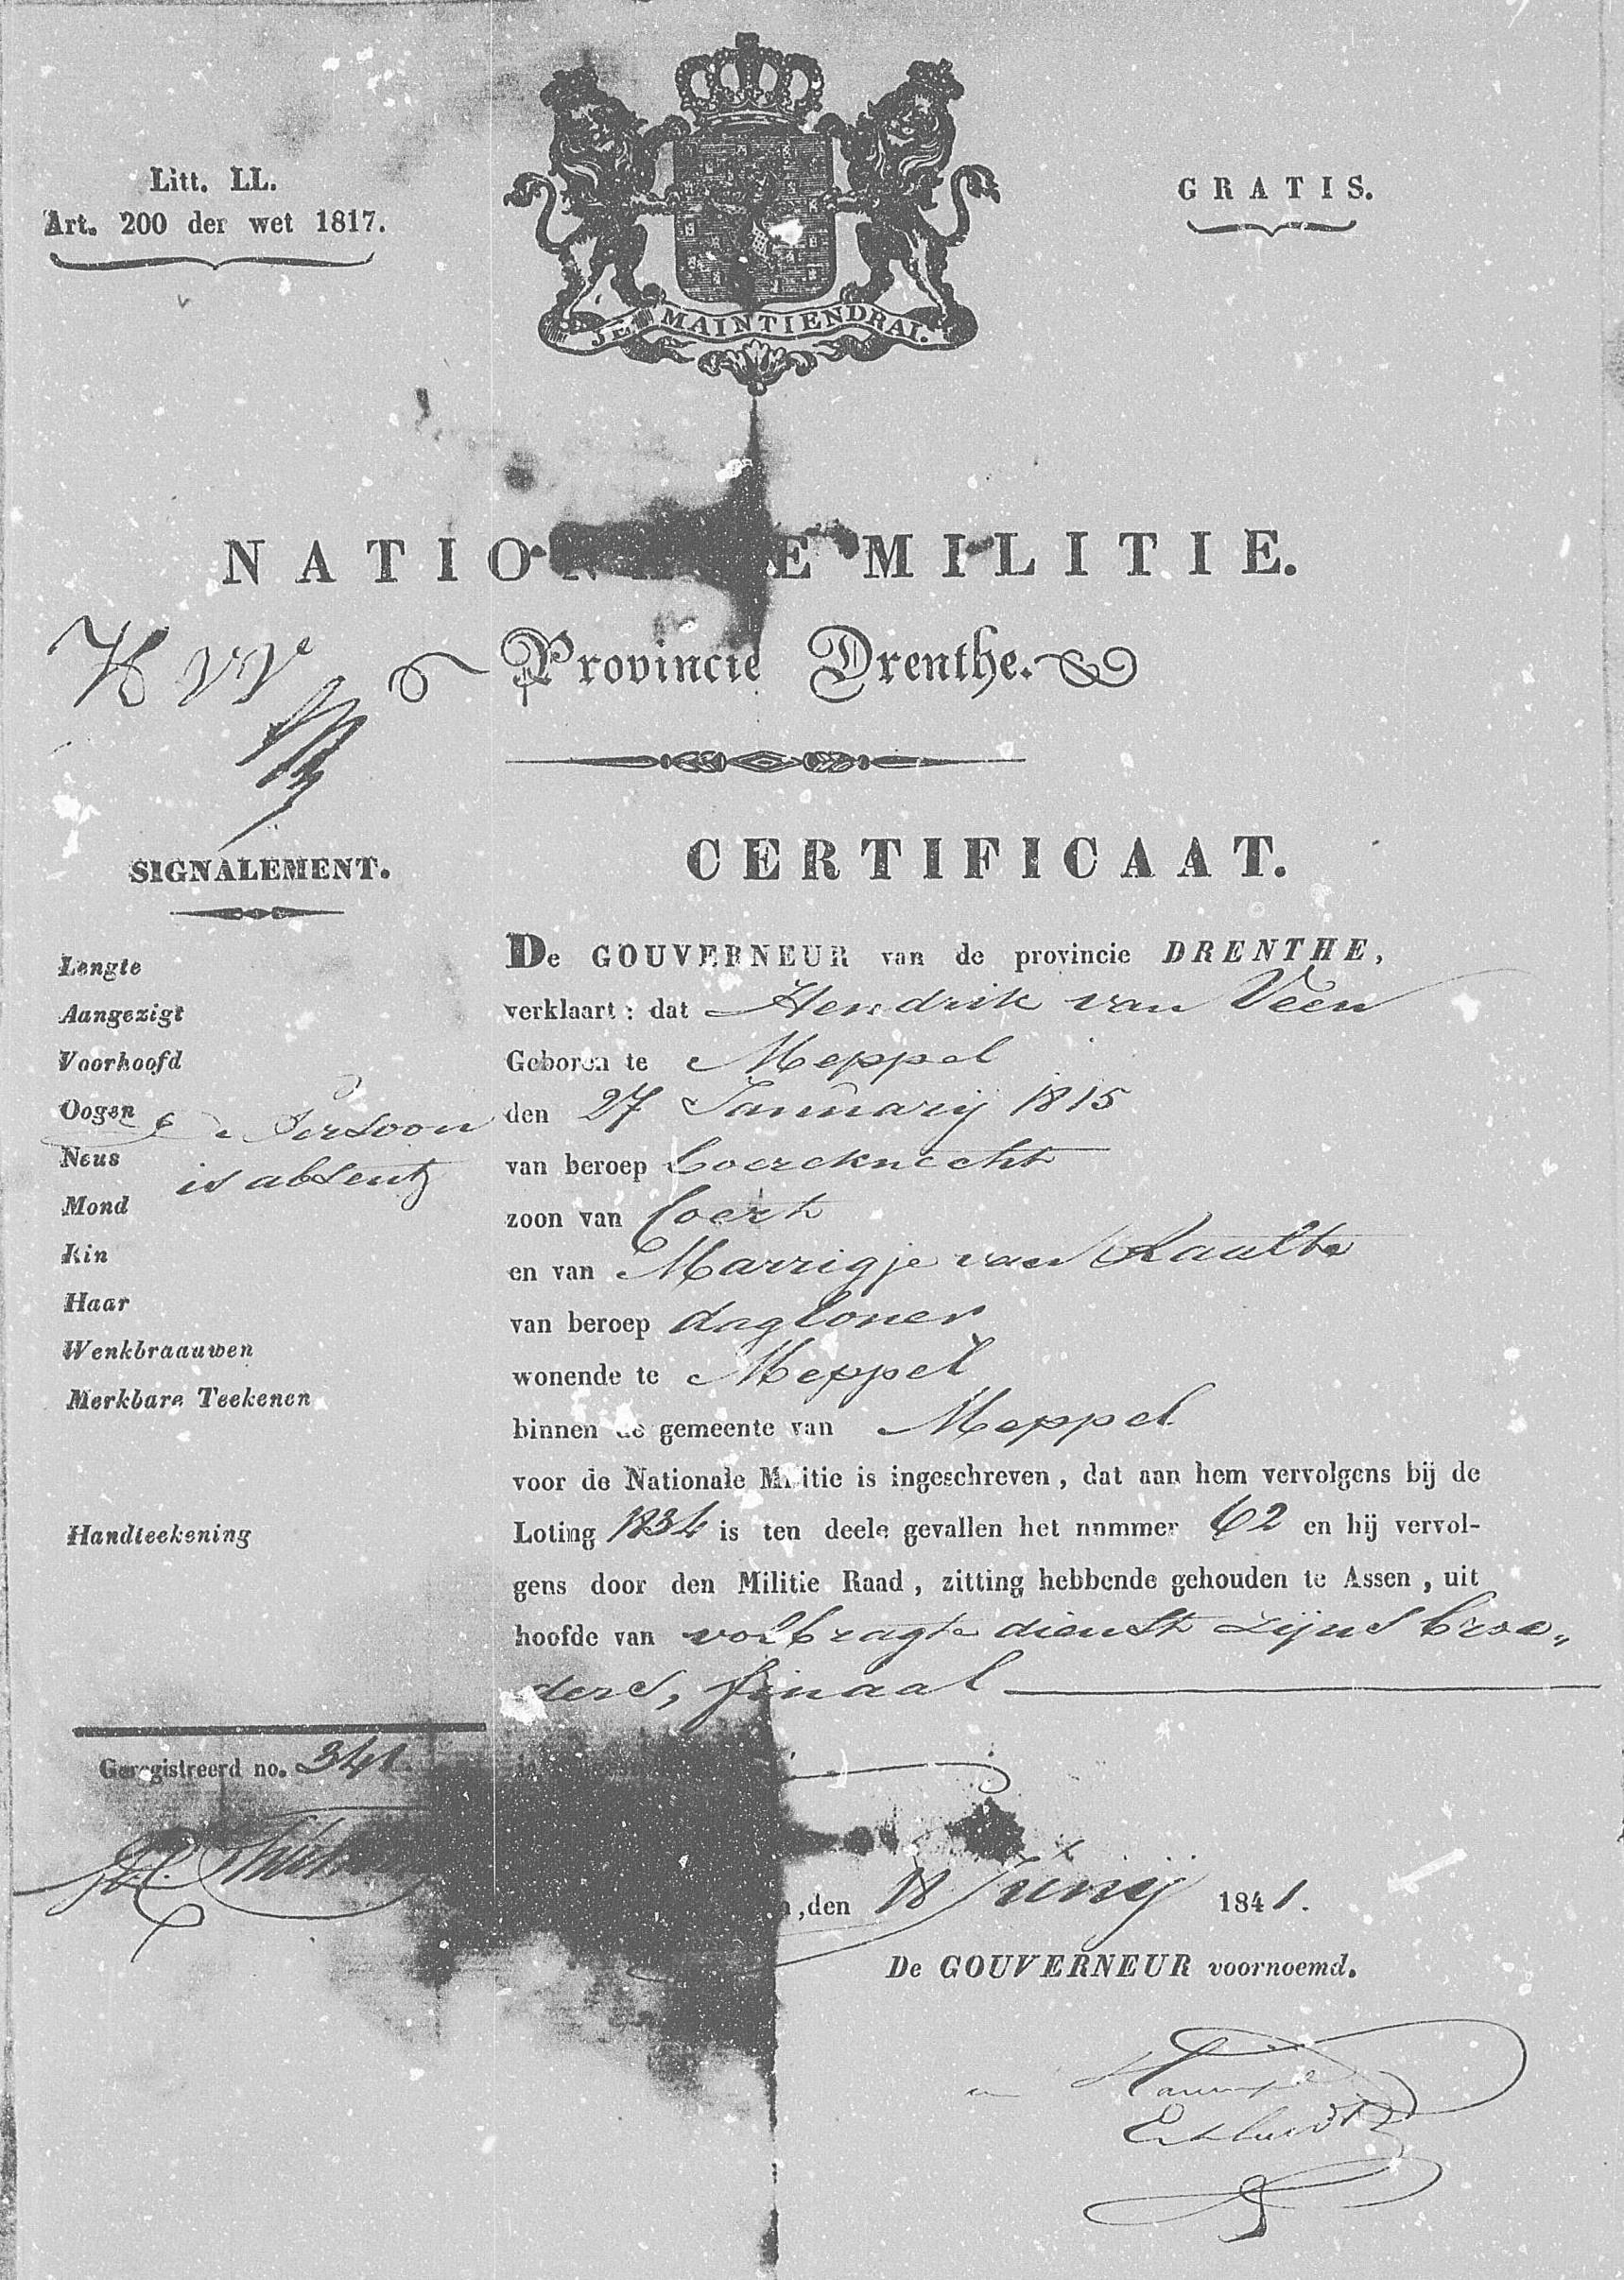 Litt. LL.
Art. 200 der wet 1817.
GRATIS.
JE MAINTIENDRAI.
NATIONALE MILITIE.
Provincie Drenthe.
SIGNALEMENT.
Lengte
Aangezigt
Voorhoofd
Oogen
Neus
Mond
Kin
Haar
Wenkbraauwen
Merkbare Teekenen
de Persoon
is absent
Handteekening
Geregistreerd no. 341.
CERTIFICAAT.
De GOUVERNEUR van de provincie DRENTHE,
verklaart: dat Hendrik van Veen
Geboren te Meppel
den 27 Januarij 1815
van beroep
zoon van Coert
en van Marrigje van Raalte
van beroep dagloner
wonende te Meppel
binnen de gemeente van Meppel
voor de Nationale Militie is ingeschreven, dat aan hem vervolgens bij de
Loting 1834 is ten deele gevallen het nummer 62 en hij vervol-
gens door den Militie Raad, zitting hebbende gehouden te Assen, uit
hoofde van volbragte dienst zijns broe„
ders, finaal
,den 18 Junij 1841.
De GOUVERNEUR voornoemd.